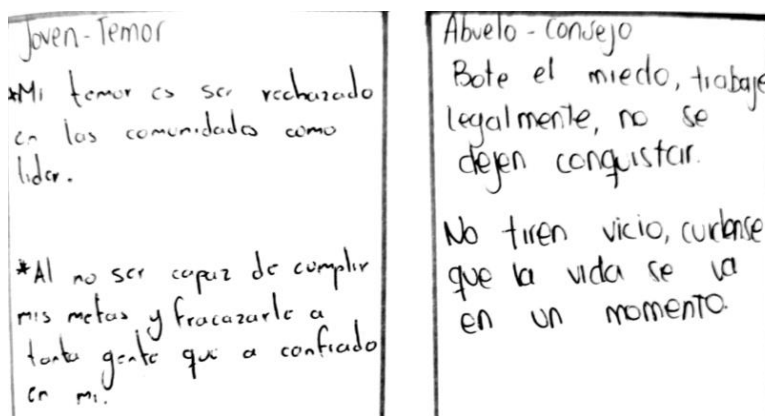 Joven-Temor
*Mi temor es ser rechazado
en las comunidades como
lider.
*Al no ser capaz de cumplir
mis metas y fracazarle a
tanta gente que a confiado
en mi.
Abuelo - Consejo
Bote el miedo, trabaje
legalmente, no se
dejen conquistar.
No tiren vicio, cuidense
que la vida se va
en un momento.